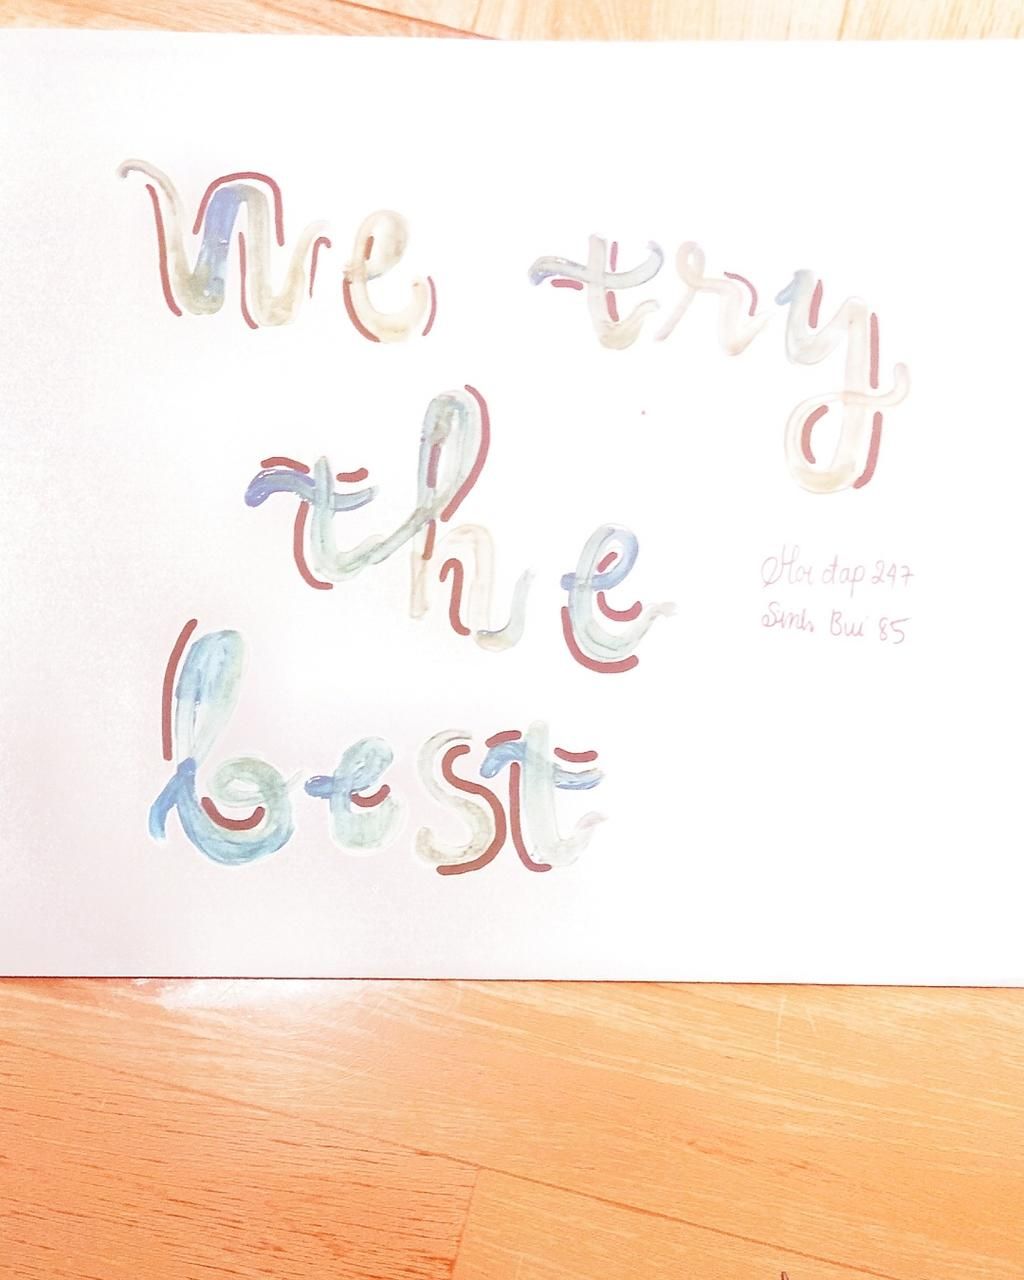 We try
the
best
Hoi đap 247
Sinh Bui 85